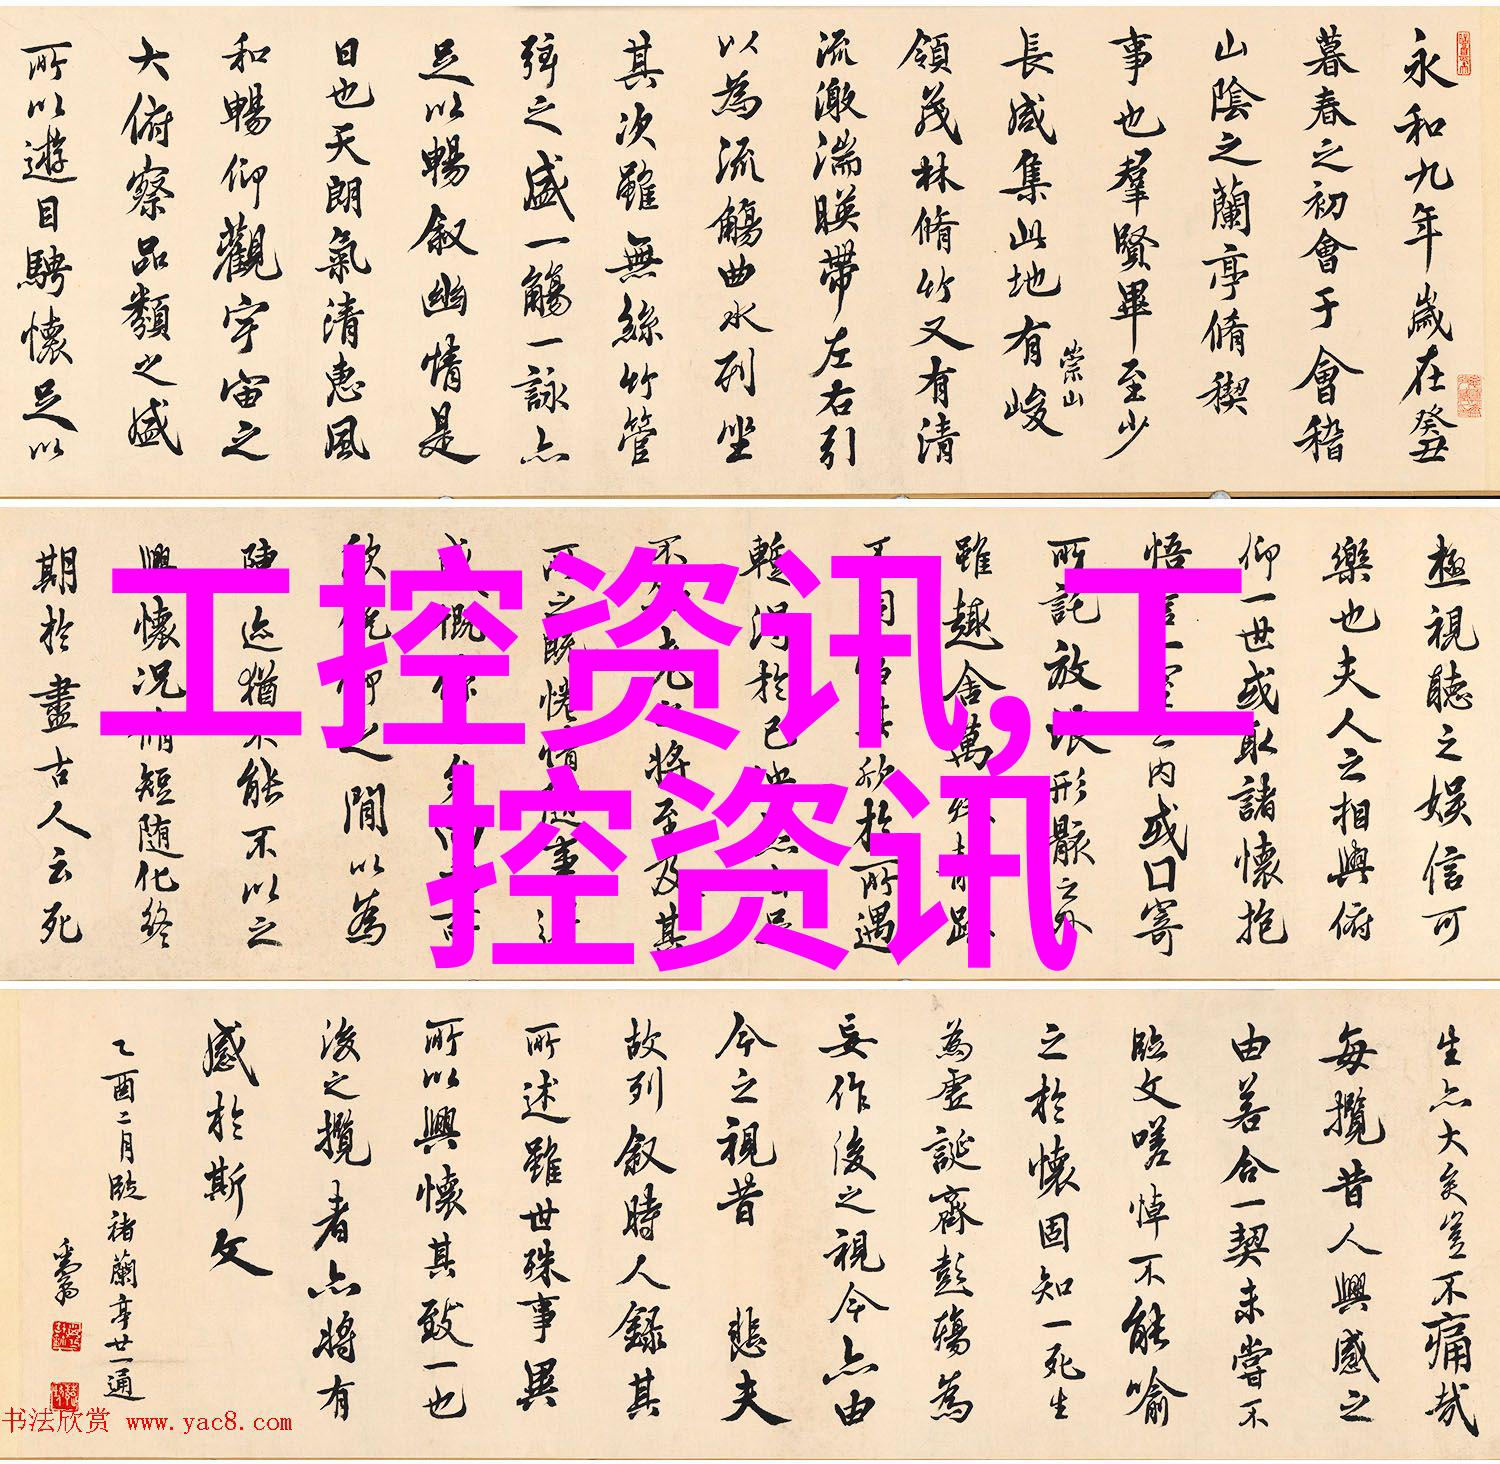 永和九年歲在癸丑
暮春之初會于會稽
山陰之蘭亭脩稧
事也羣賢畢至少
長咸集此地有崇山峻
領茂林脩竹又有清
流激湍暎帶左右引
以為流觴曲水列坐
其次雖無絲竹管
弦之盛一觴一詠亦
足以暢叙幽情是
日也天朗氣清惠風
和暢仰觀宇宙之
大俯察品類之盛
所以遊目騁懷足以
極視聽之娛信可
樂也夫人之相與俯
仰一世或取諸懷抱
悟言一室之內或口寄
所託放浪形骸之外
雖趣舍萬
欣於所遇
暫得於己
老之將至及其
之既惓情隨事
慨
仰之閒以為
陳迹猶不能不以之
興懷況脩短隨化終
期於盡古人云死
生亦大矣豈不痛哉
每攬昔人興感之
由若合一契未嘗不
臨文嗟悼不能喻
之於懷固知一死生
為虛誕齊彭殤為
妄作後之視今亦由
今之視昔 悲夫
故列叙時人錄其
所述雖世殊事異
所以興懷其致一也
後之攬者亦將有
感於斯文
乙酉二月臨褚蘭亭廿一通
工控资讯,工
控资讯
书法欣赏 www.yac8.com